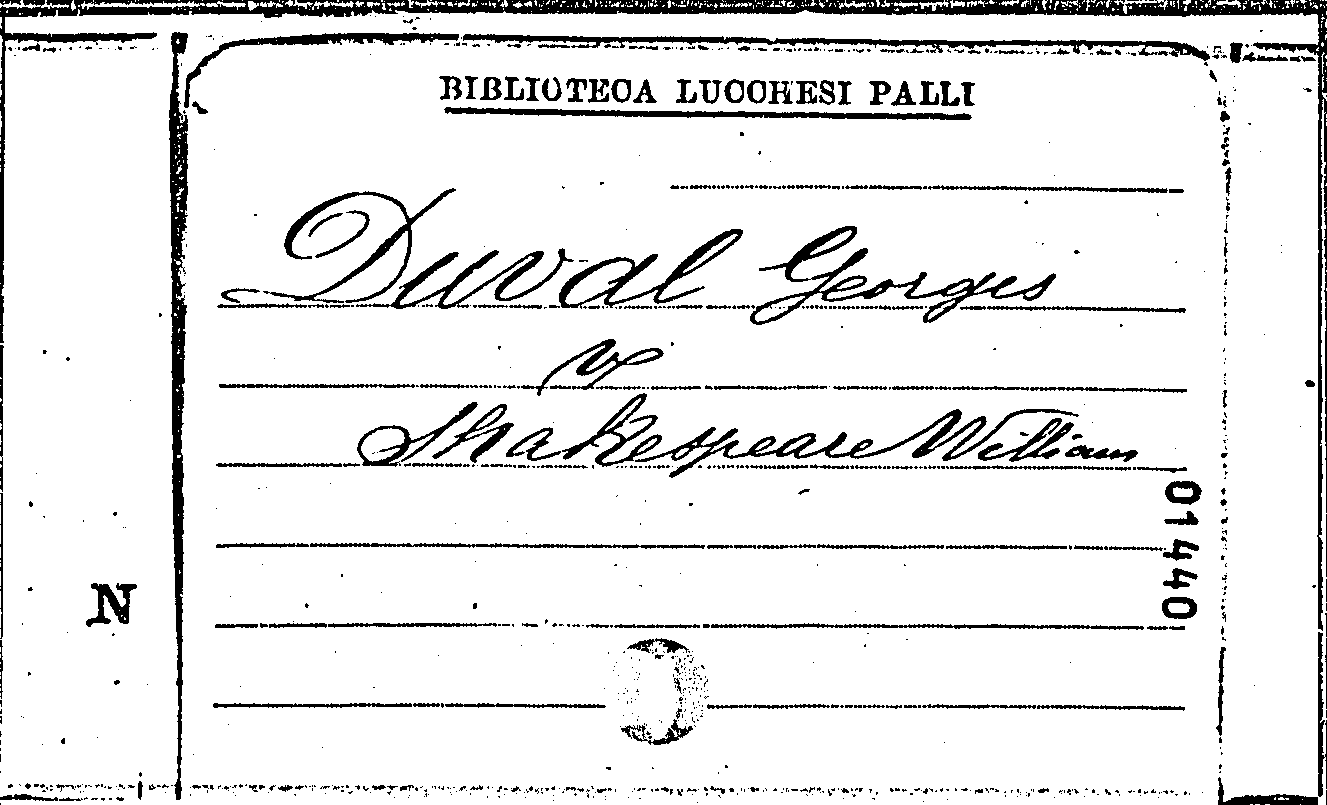 BIBLIOTECA LUCCHESI PALLI
Duval Georges
v
Shakespeare William
01440
N